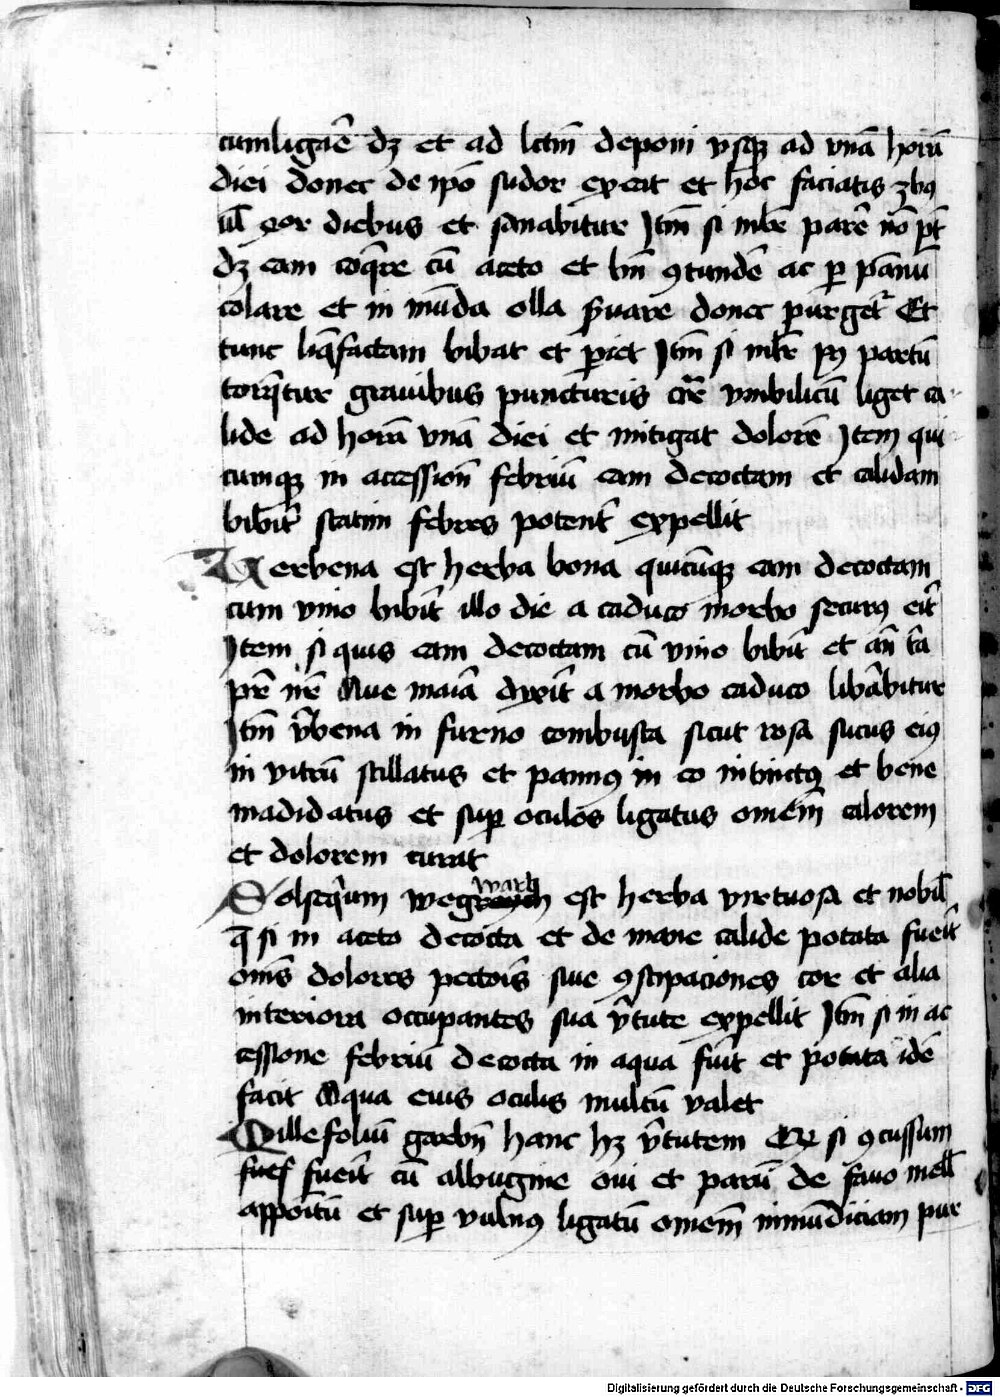 cumligaē dꝫ et ad lctm̄ deponi vsqꝫ ad vnā horā
diei donec de ip̄o sudor exeat et hoc faciatis
diebus et sanabitur Jtm̄ si parē nō pt̄
dꝫ eam coq̄re cū aceto et bn̄ ꝯtundē ac ꝑ pannū
colare et in mūda olla ẜuare donec purgetᷣ Et
tunc liq̄factam bibat et pariet Jtm̄ si post partū
torq̄tur grauibus puncturis circa vmbilicū liget ca
lide ad horā vnā diei et mitigat dolorē Jtem qui
cumqꝫ in accession̄ febriū eam decoctam et calidam
biberit statim febres potent̄ expellit
Verbena est herba bona quicūqꝫ eam decoctam
cum vino bibit̄ illo die a caduco morbo securꝰ eit̄
Jtem si quis eam decoctam cū vino bibit̄ et an̄ t̄a
pr̄ nr̄ Aue maiā dixit̄ a morbo caduco libābitur
Jtm̄ v̄bena in furno combusta sicut rosa sucus eiꝰ
in vitrū stillatus et pannꝰ in eo intinctꝰ et bene
madidatus et suꝑ oculos ligatus omēm calorem
et dolorem curat
Solseq̄uim weg wart est herba virtuosa et nobil̄
q̄ si in aceto decocta et de mane calide potata fueit̄
om̄s dolores pectois̄ siue ꝯstipaciones cor et alia
interiora occupantes sua v̄tute expellit Jtm̄ si in ac
cessione febriū decocta in aqua fuit̄ et potata idē
facit Aqua eius oculis multū valet
Millefoliū garbn̄ hanc hꝫ v̄tutem si ꝯcussum
fueit̄ cū albugine oui et parū de fauo mell̄
appoitū et suꝑ vulnꝰ ligatū omem̄ inmūdiciam pur
Digitalisierung gefördert durch die Deutsche Forschungsgemeinschaft - DFG